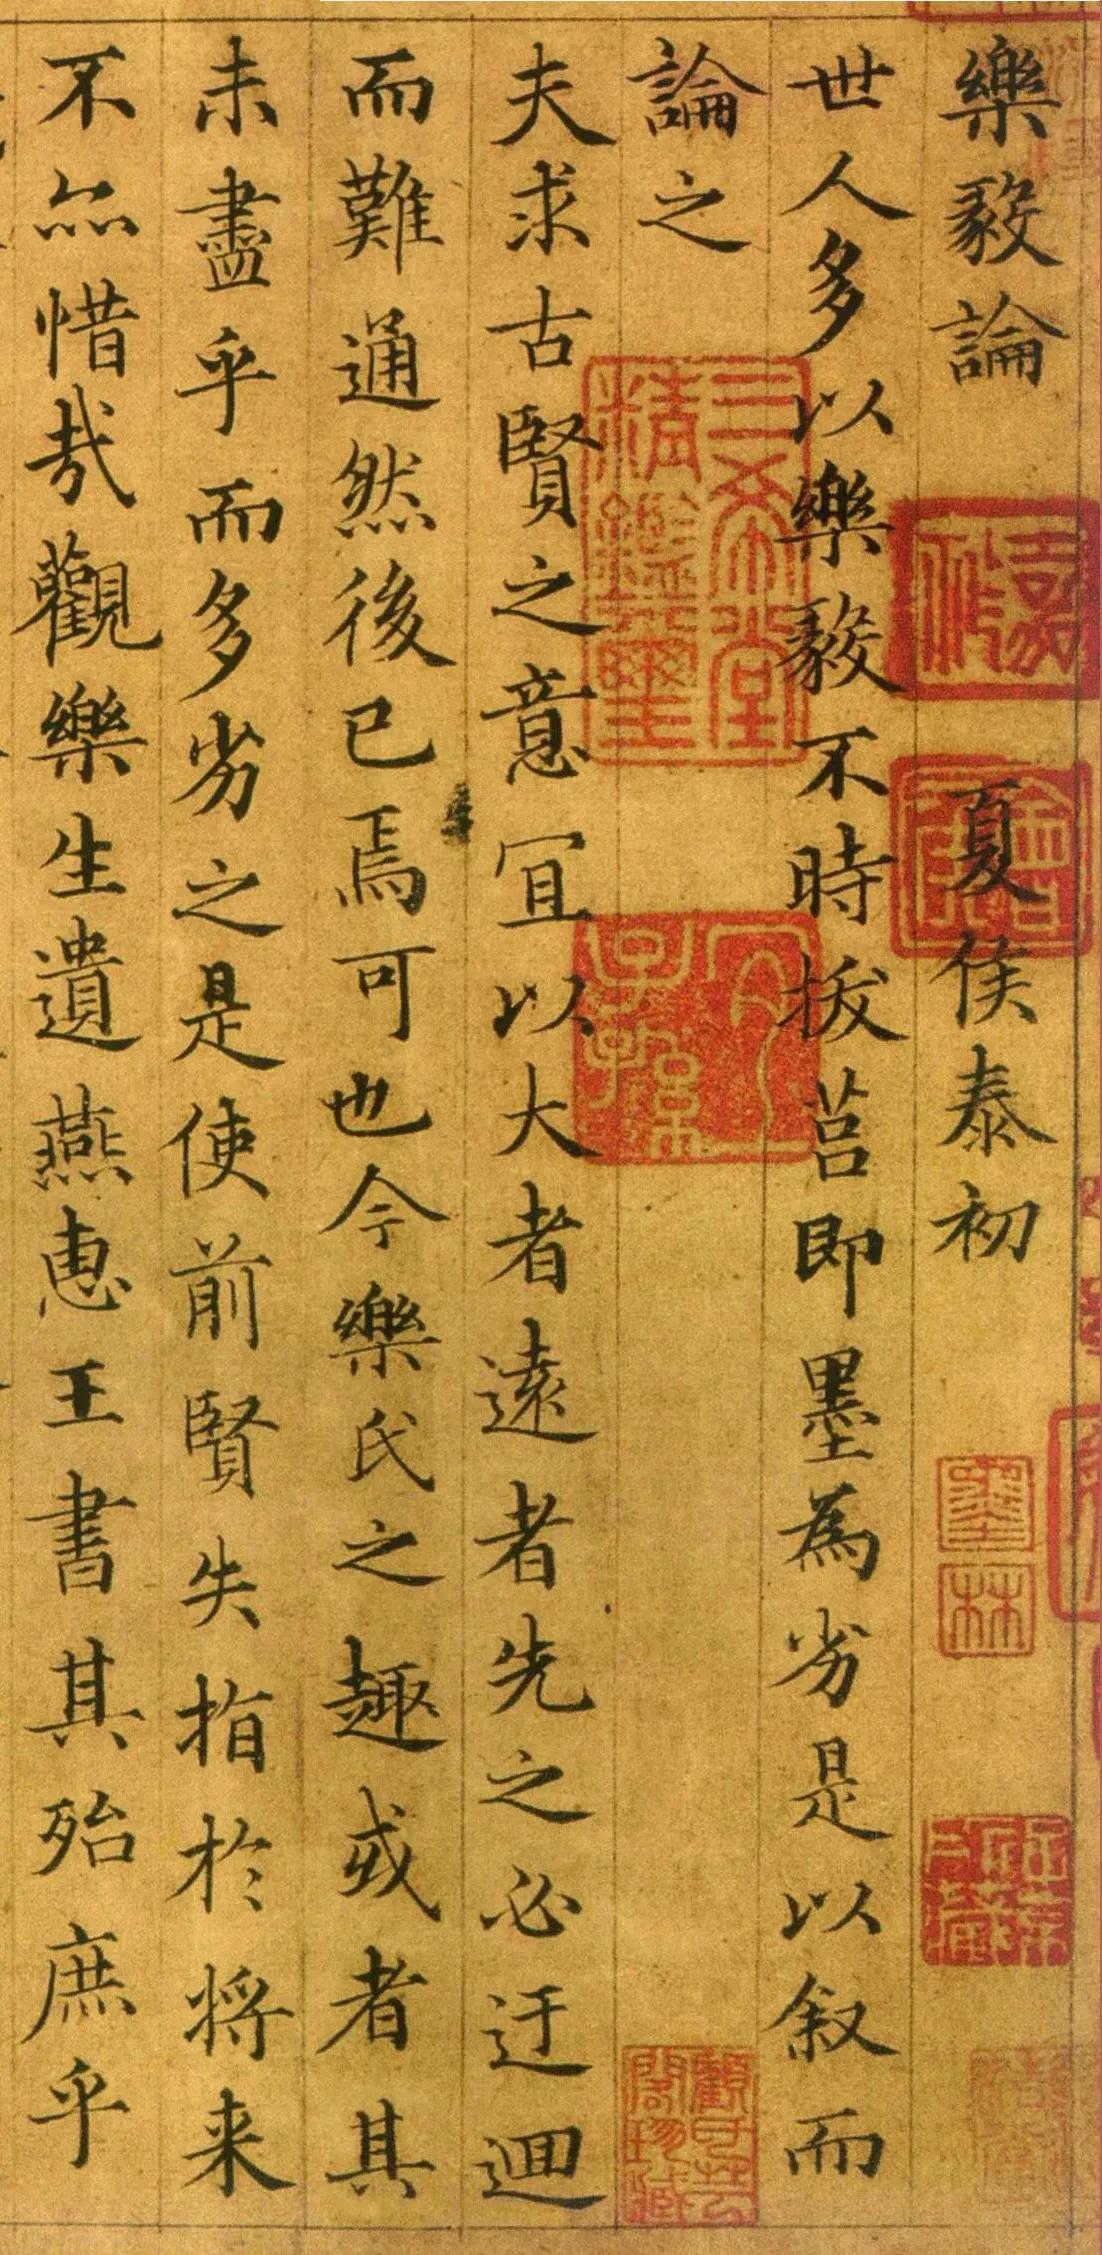 樂毅論 夏侯泰初
世人多以樂毅不時拔莒即墨為劣是以叙而
論之
夫求古賢之意宜以大者遠者先之必迂迴
而難通然後已焉可也今樂氏之趣或者其
未盡乎而多劣之是使前賢失指於將来
不亦惜哉觀樂生遺燕惠王書其殆庶乎
三希堂
精鑑璽
墨
林